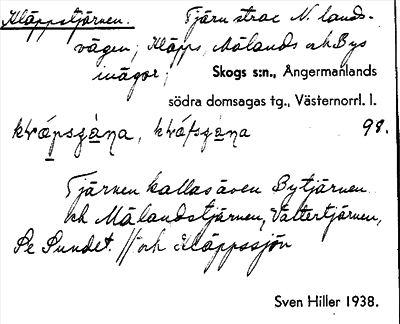 Kläppstjärnen. Tjärn strax N. lands-
vägen; Kläpps, Mälands och Bys
inägor; Skogs s:n., Ångermanlands
södra domsagas tg., Västernorrl. l.
98.
Tjärnen kallas även Bytjärnen
och Mälandstjärnen, Vättertjärnen,
Se Sundet. // och Kläppssjön
Sven Hiller 1938.